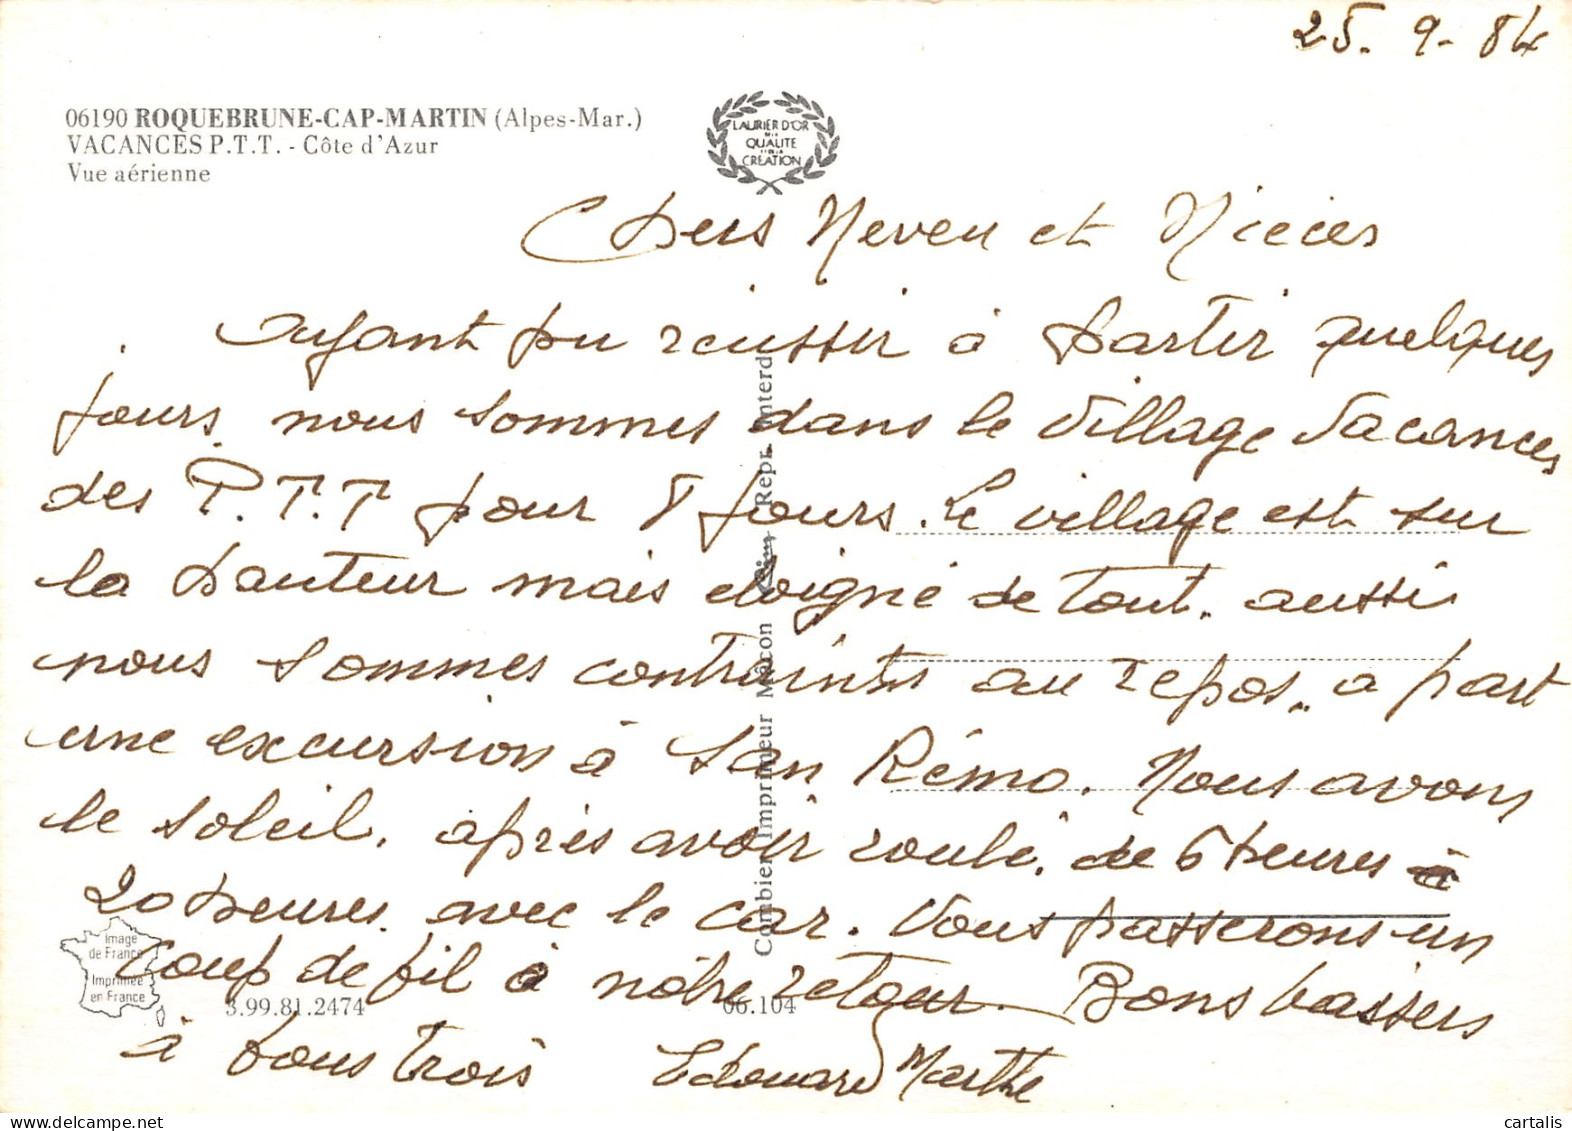 25. 9. 84
06190 ROQUEBRUNE-CAP-MARTIN (Alpes-Mar.)
VACANCES P.T.T. - Côte d'Azur
Vue aérienne
LAURIER D'OR
DE LA
QUALITÉ
ET DE LA
CRÉATION
Chers Neveu et Nièces
Ayant pu réussir à partir quelques
jours, nous sommes dans le village Vacances
des P.T.T pour 8 jours. Le village est sur
la hauteur mais eloigné de tout. aussi
nous sommes contraints au repos.. a part
une excursion à San Rémo. Nous avons
le soleil, après avoir roulé, de 6 heures à
20 heures, avec le car. Vous passerons un
coup de fil à nôtre retour. Bons baisers
à tous trois Edouard Marthe
Combier Imprimeur Mâcon Cim Repr. interd
Image
de France
Imprimée
en France
3.99.81.2474
06.104
cartalis